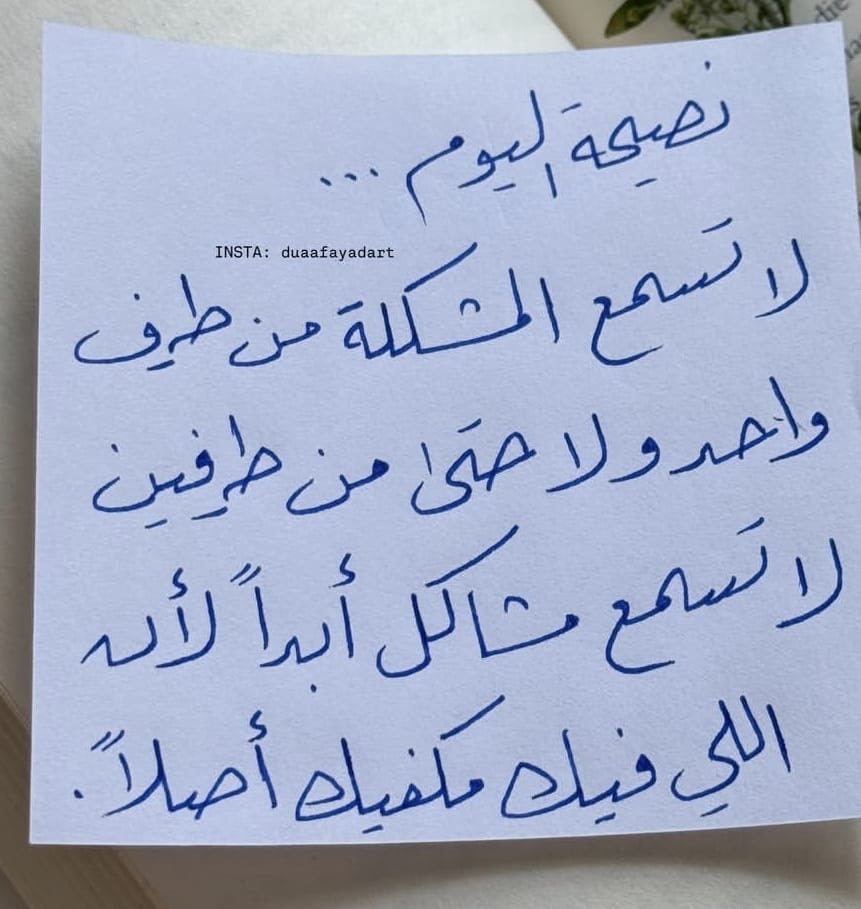 نصيحة اليوم ...
INSTA: duaafayadart
لا تسمع المشكلة من طرف
واحد ولا حتى من طرفين
لا تسمع مشاكل أبداً لأن
اللي فيك مكفيك أصلاً.